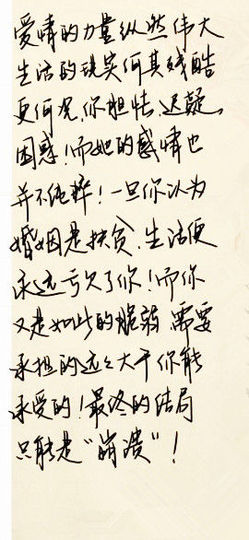 爱情的力量纵然伟大
生活的现实何其残酷
更何况,你胆怯、迟疑,
困惑!而她的感情也
并不纯粹!一旦你认为
婚姻是扶贫、生活便
永远亏欠了你!而你
又是如此的脆弱 需要
承担的远远大于你能
承受的!最终的结局
只能是“崩溃”!